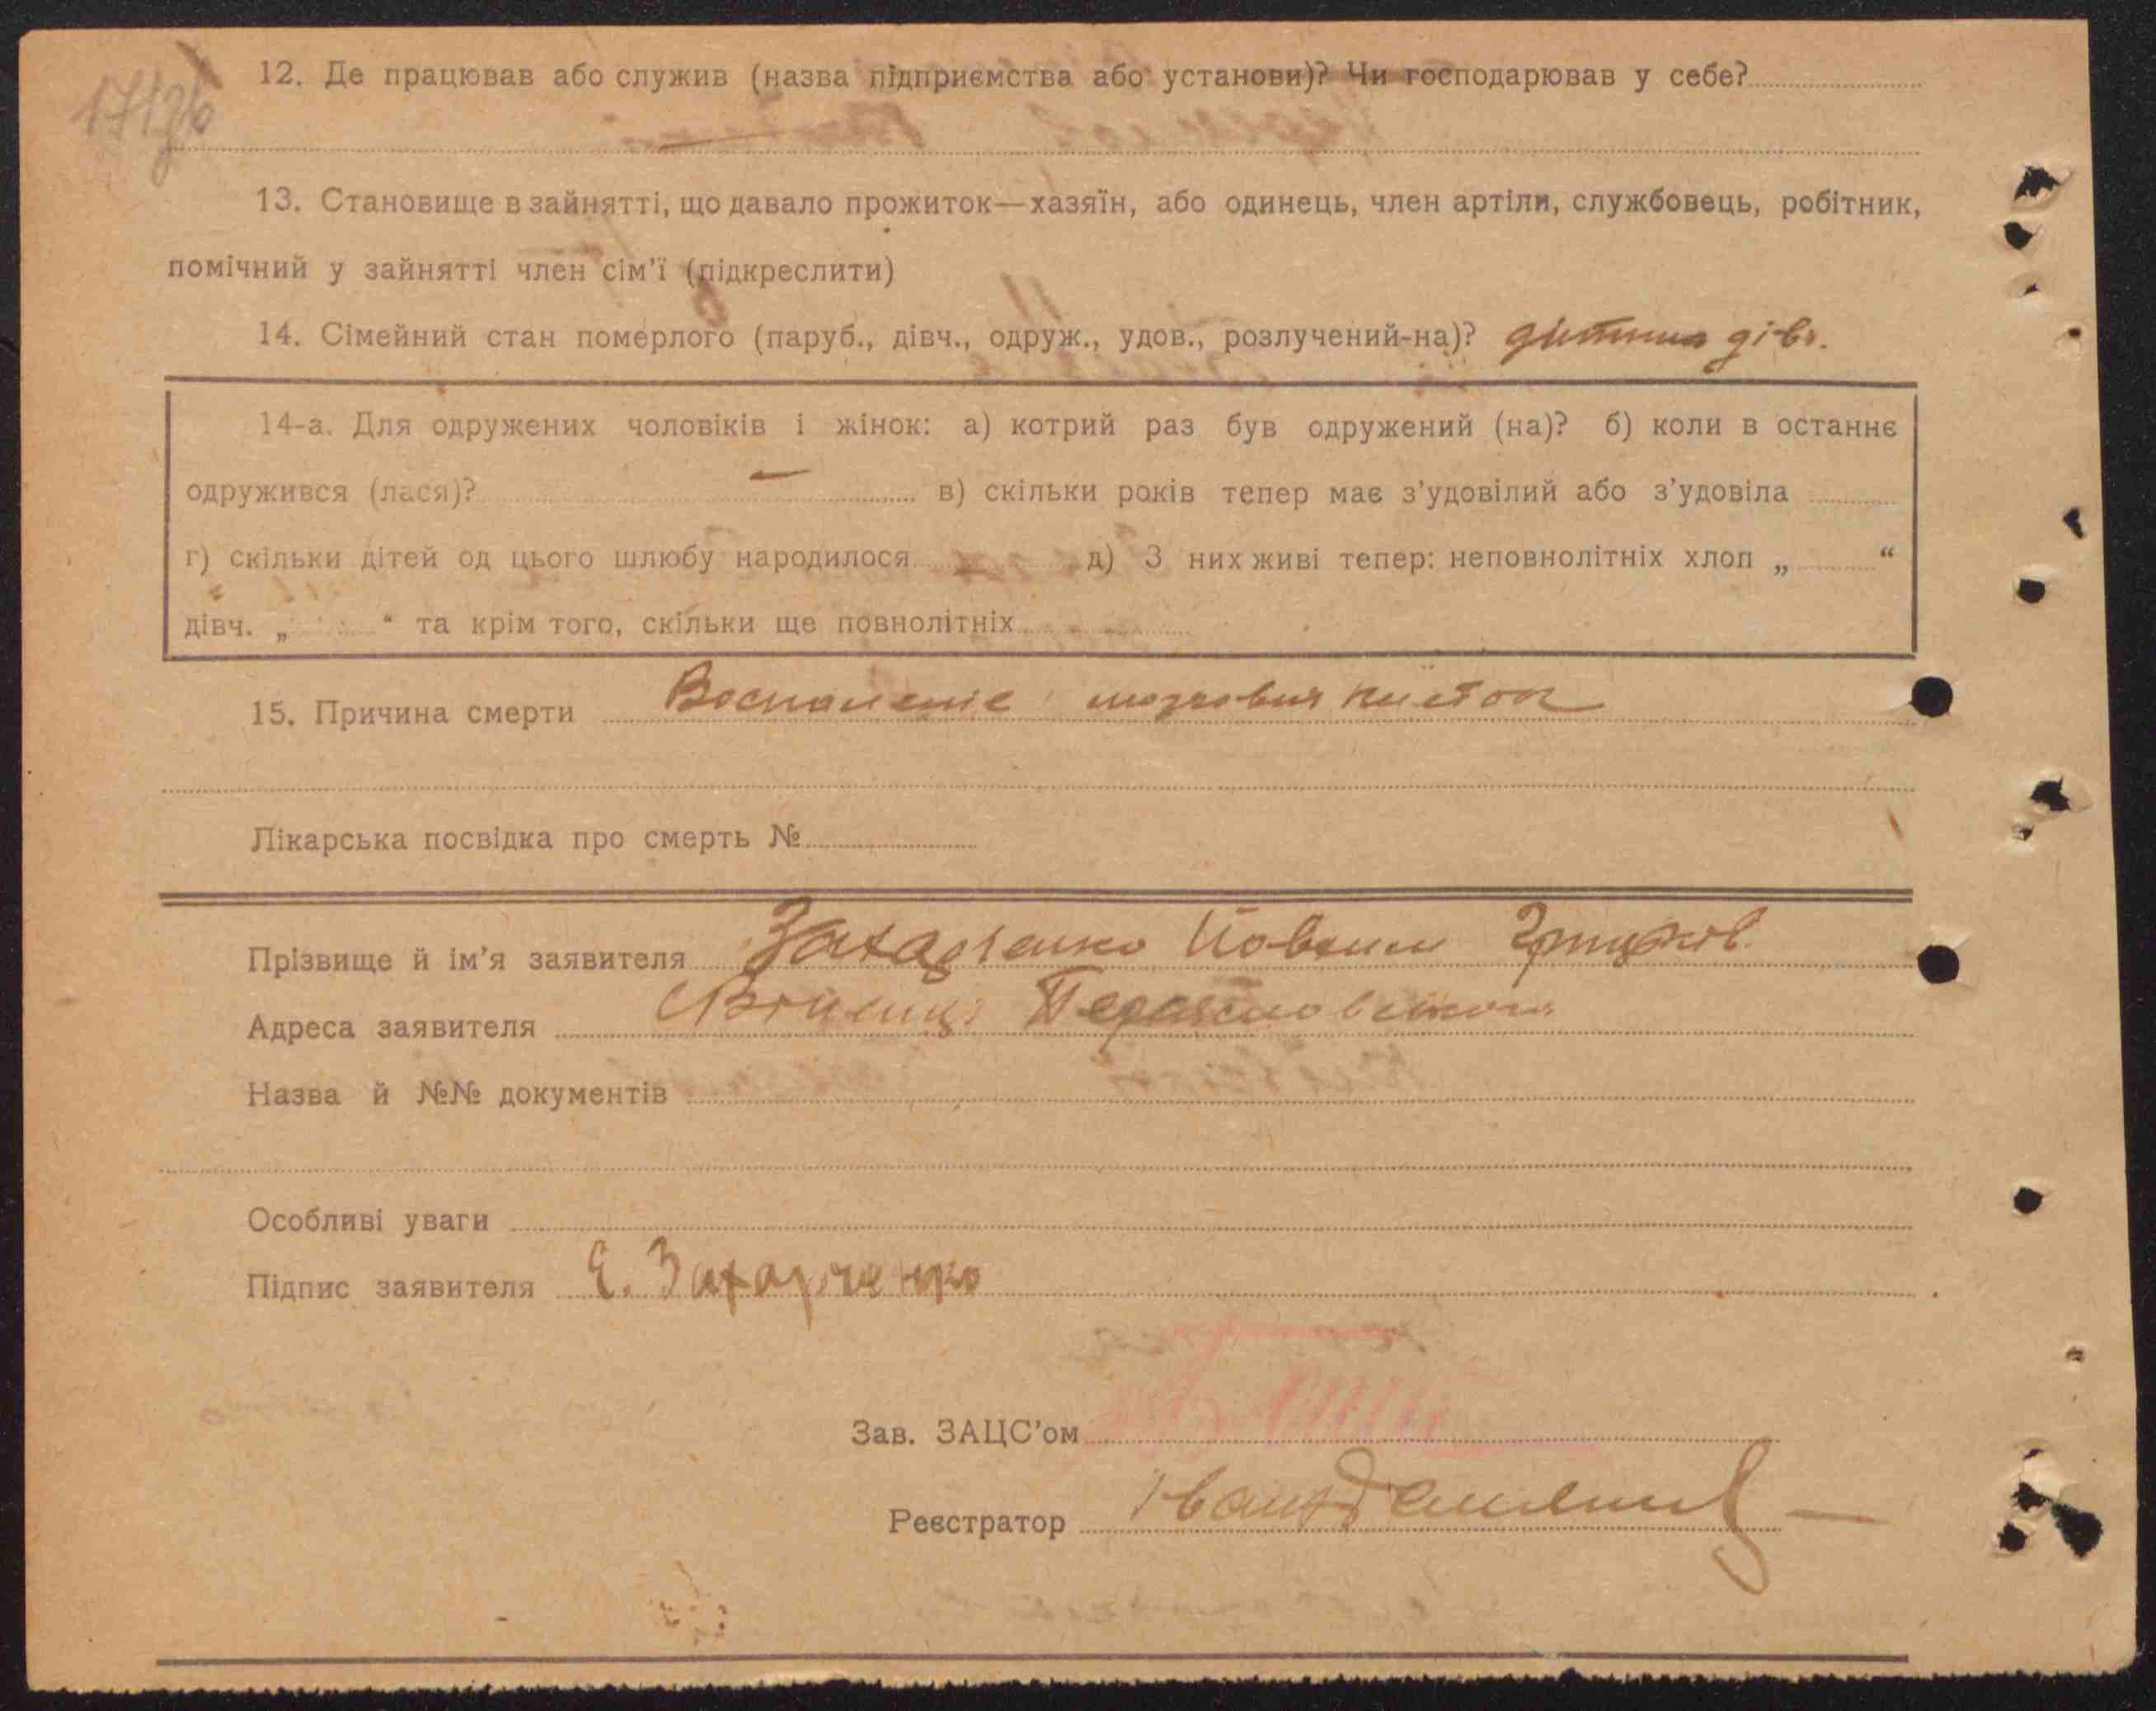 12. Де працював або служив (назва підприємства або установи)? Чи господарював у себе?
13. Становище в зайнятті, що давало прожиток—хазяїн, або одинець, член артіли, службовець, робітник,
помічний у зайнятті член сім'ї (підкреслити)
14. Сімейний стан померлого (паруб., дівч., одруж., удов., розлучений-на)? дитина дівч.
14-а. Для одружених чоловіків і жінок: а) котрий раз був одружений (на)? б) коли в останнє
одружився (лася)? — в) скільки років тепер має з'удовілий або з'удовіла
г) скільки дітей од цього шлюбу народилося д) З них живі тепер: неповнолітніх хлоп „ “
дівч. „ “ та крім того, скільки ще повнолітніх
15. Причина смерти Воспаление мозговых
Лікарська посвідка про смерть №
Прізвище й ім'я заявителя Захарченко
Адреса заявителя
Назва й №№ документів
Особливі уваги
Підпис заявителя Є. Захарченко
Зав. ЗАЦС'ом
Реєстратор